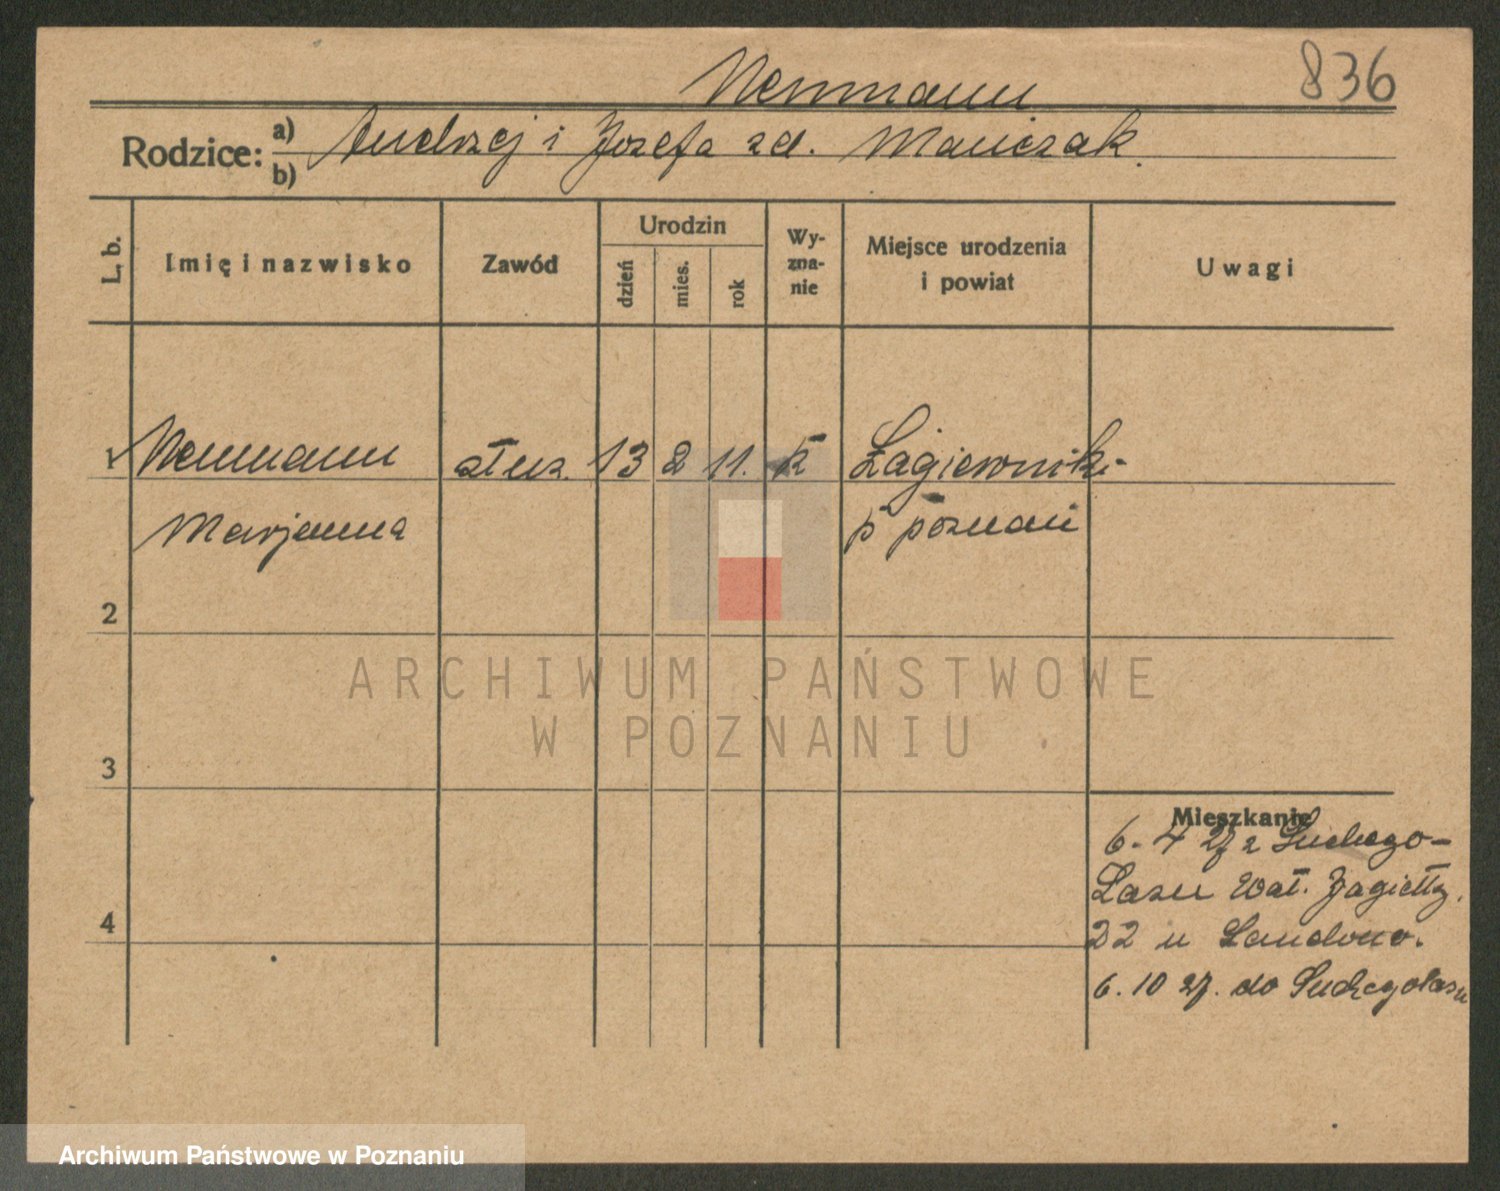 Neumann 836
Rodzice: a) Andrzej i Józefa zd. Mańczak.
b)
L. b. Imię i nazwisko Zawód Urodzin dzień mies. rok Wy-zna-nie Miejsce urodzenia i powiat Uwagi
1 Neumann służ. 13 2 11. k Łagiewniki
Marjanna p Poznań
2
3
4
Mieszkanie
6. 4 27 z Suchego-
Lasu Wał. Jagiełły.
22 u
6. 10 27. do Suchegolasu
ARCHIWUM PAŃSTWOWE
W POZNANIU
Archiwum Państwowe w Poznaniu